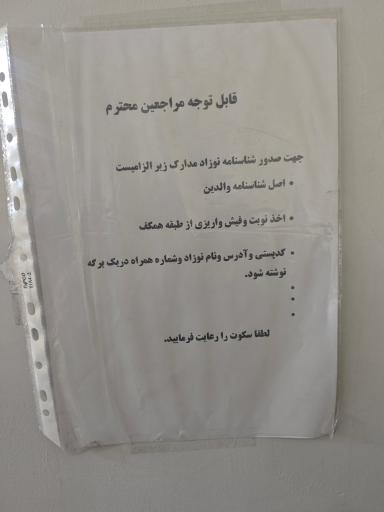 قابل توجه مراجعین محترم
جهت صدور شناسنامه نوزاد مدارک زیر الزامیست
• اصل شناسنامه والدین
• اخذ نوبت وفیش واریزی از طبقه همکف
• کدپستی و آدرس ونام نوزاد وشماره همراه دریک برگه
نوشته شود.
•
•
•
لطفا سکوت را رعایت فرمایید.